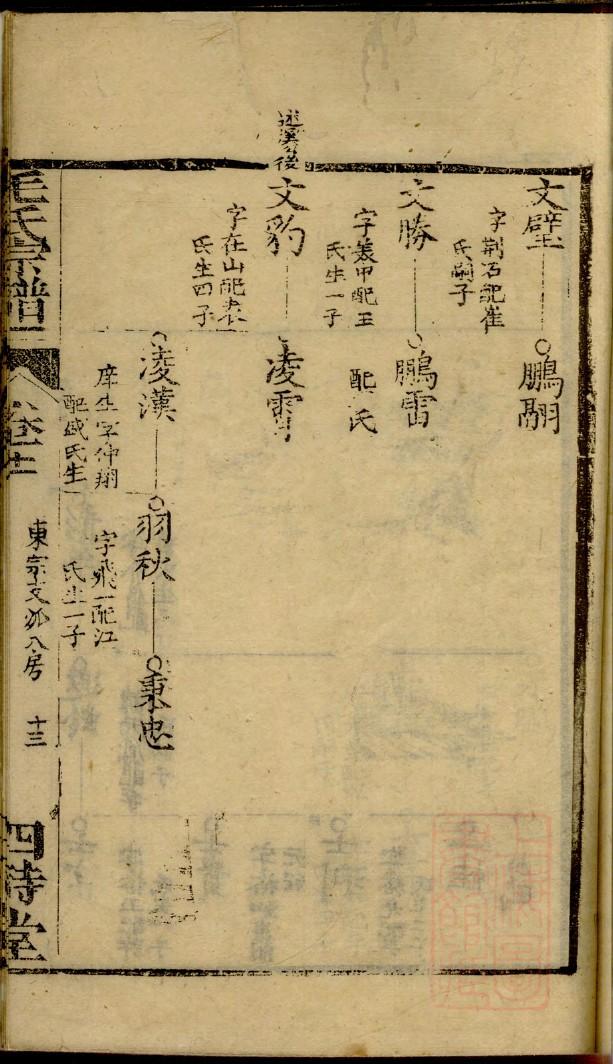 文壁
字荆石配崔
氏嗣子
鵬翮
文勝
字義甲配王
氏生一子
鵬雷
配 氏
述溪後
文豹
字在山配袁
氏生四子
凌霄
凌漢
庠生字仲翔
配盛氏生
羽秋
字飛一配江
氏生一子
秉忠
毛氏宗譜
東宗文 八房 十三
四持堂